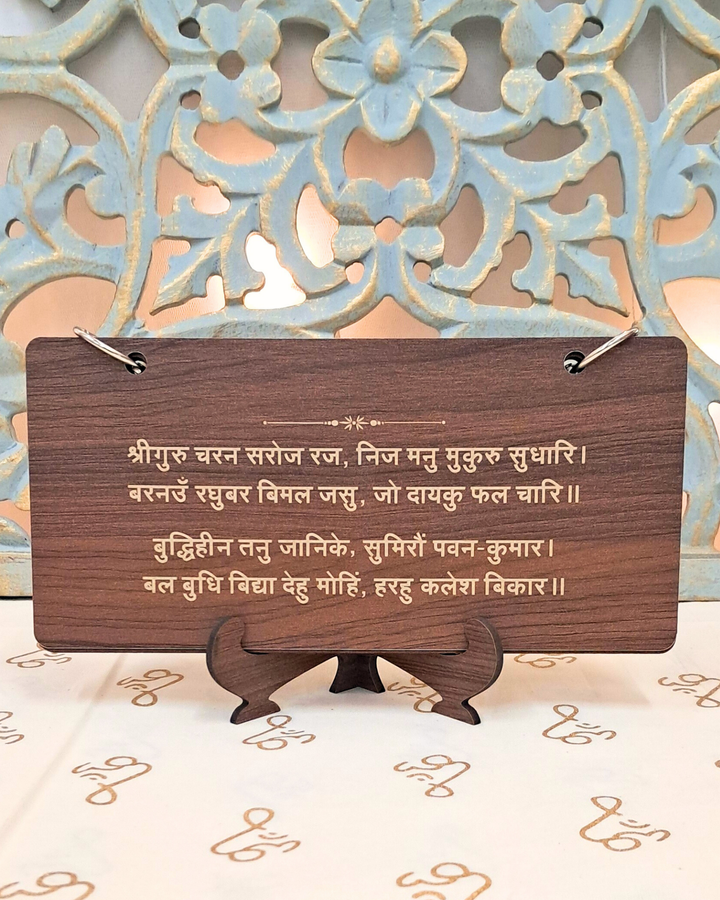 श्रीगुरु चरन सरोज रज, निज मनु मुकुरु सुधारि।
बरनउँ रघुबर बिमल जसु, जो दायकु फल चारि॥
बुद्धिहीन तनु जानिके, सुमिरौं पवन-कुमार।
बल बुधि बिद्या देहु मोहिं, हरहु कलेश बिकार॥